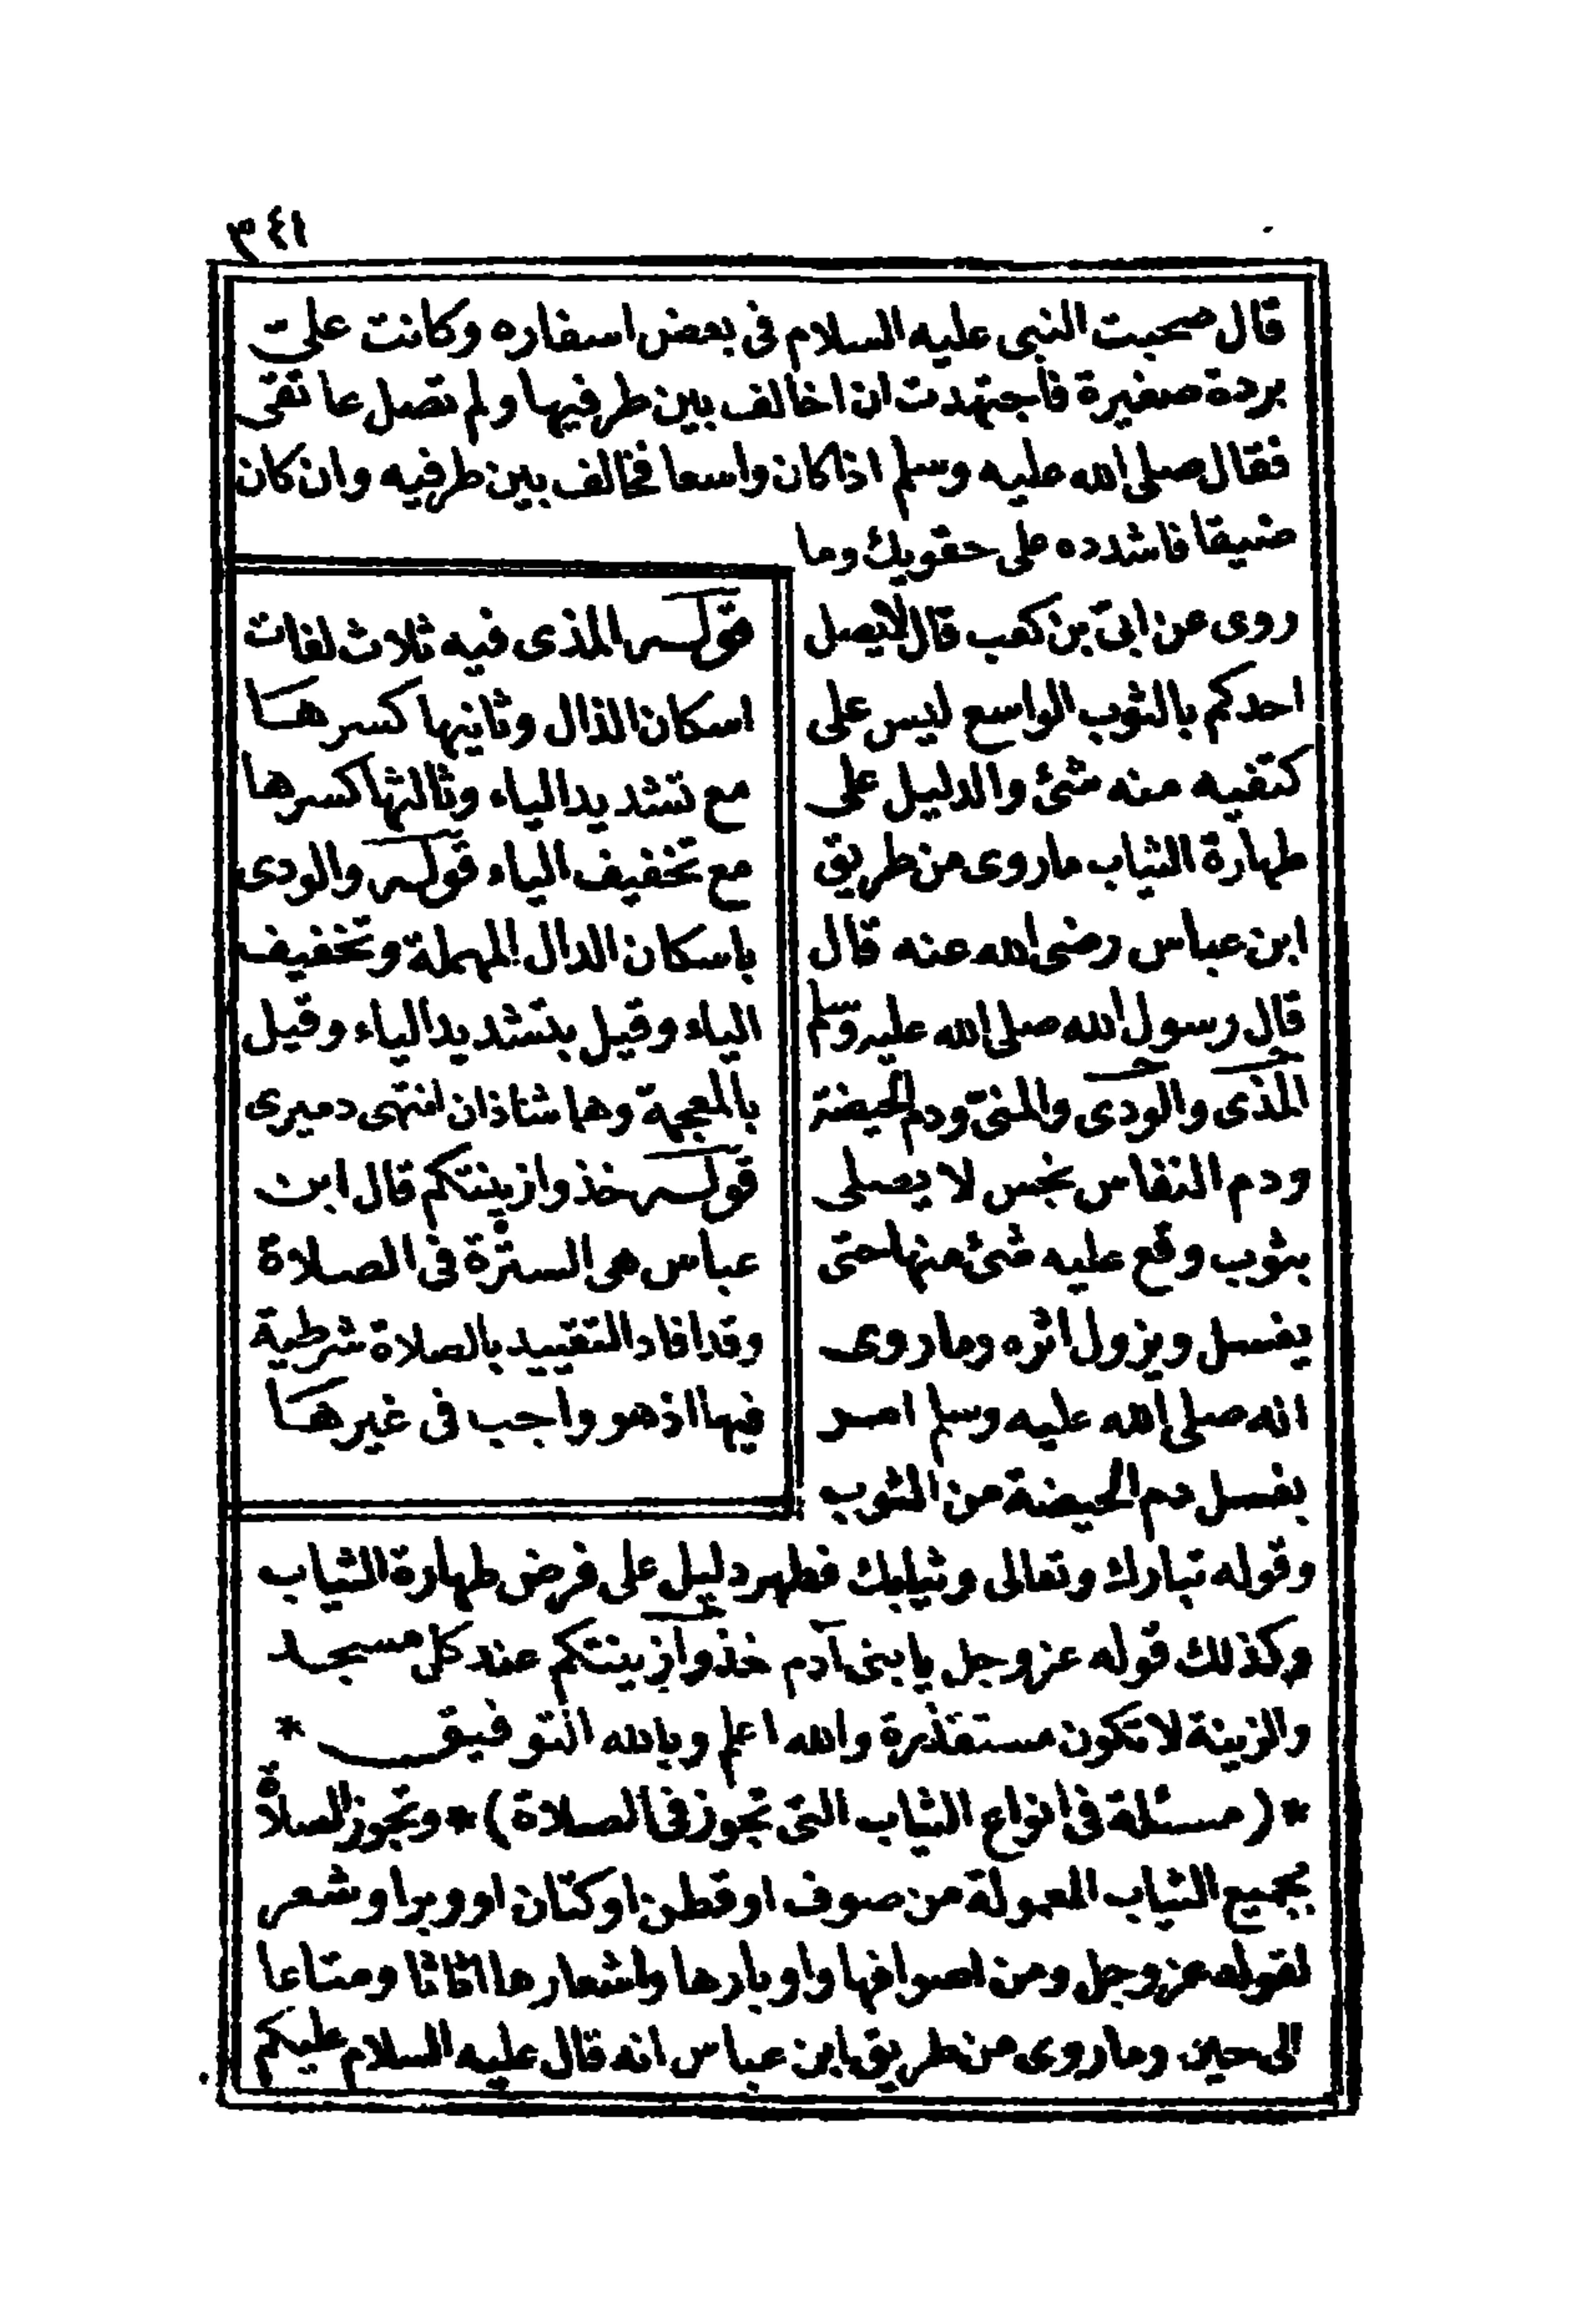 ٣٤١
قال صحبت النبى عليه السلام فى بعض اسفاره وكانت على
بردة صغيرة فاجتهدت ان اخالف بين طرفيها ولم تصل عاتقى
فقال صلى الله عليه وسلم اذا كان واسعا فخالف بين طرفيه وان كان
ضيقا فاشدده على حقويك وما
روى عن ابىّ بن كعب قال لا يصل
احدكم بالثوب الواسع ليس على
كتفيه منه شئ والدليل على
طهارة الثياب ماروى من طريق
ابن عباس رضى الله عنه قال
قال رسول الله صلى الله عليه وسلم
المذى والودى والمنى ودم الحيضة
ودم النفاس نجس لا يصلى
بثوب وقع عليه شئ منها حتى
يغسل ويزول اثره وما روى
انه صلى الله عليه وسلم امر
بغسل دم الحيضة من الثوب
قوله المذى فيه ثلاث لغات
اسكان الذال وثانيها كسرها
مع تشديد الياء وثالثها كسرها
مع تخفيف الياء قوله والودى
باسكان الدال المهملة وتخفيف
الياء وقيل بتشديد الياء وقيل
بالمعجمة وهما شاذان انتهى دميرى
قوله خذوا زينتكم قال ابن
عباس هى السترة فى الصلاة
وقد افاد التقييد بالصلاة شرطية
فيها اذ هو واجب فى غيرها
وقوله تبارك وتعالى وثيابك فطهر دليل على فرض طهارة الثياب
وكذلك قوله عز وجل يا بنى آدم خذوا زينتكم عند كل مسجد
والزينة لا تكون مستقذرة والله اعلم وبالله التوفيق *
* (مسئلة فى انواع الثياب التى تجوز فى الصلاة) * وتجوز الصلاة
بجميع الثياب المعمولة من صوف او قطن او كتان او وبر او شعر
لقوله عز وجل ومن اصوافها واوبارها واشعارها اثاثا ومتاعا
الى حين وما روى من طريق ابن عباس انه قال عليه السلام عليكم